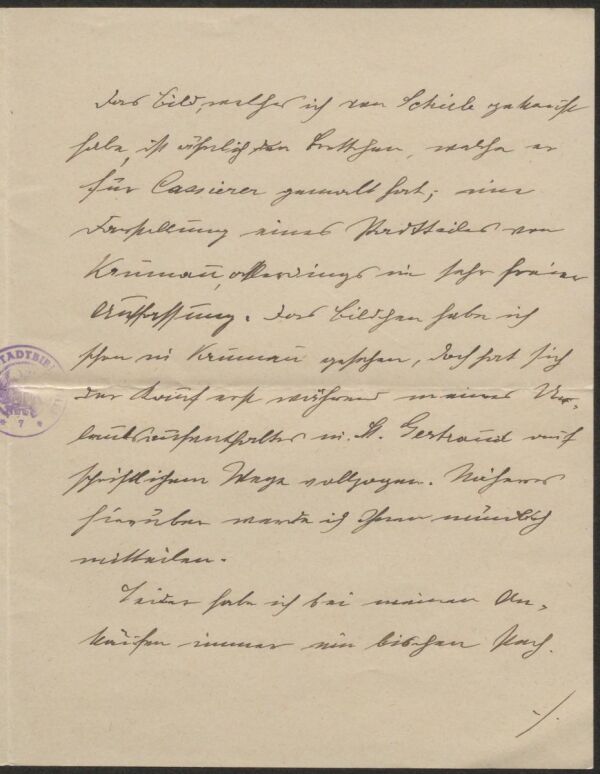 Das Bild, welches ich von Schiele gekauft
habe, ist ähnlich den Brettchen, welche er
für Cassierer gemalt hat; eine
Darstellung eines Stadtteiles von
Krumau, allerdings in sehr freier
Auffassung. Das Bildchen habe ich
schon in Krumau gesehen, doch hat sich
der Kauf erst während meines Ur-
laubsaufenthaltes in St. Gertraud auf
schriftlichem Wege vollzogen. Näheres
hierüber werde ich Ihnen mündlich
mitteilen.
Leider habe ich bei meinen An-
käufen immer ein bischen Pech.
-/.
STADTBI
* 7 *